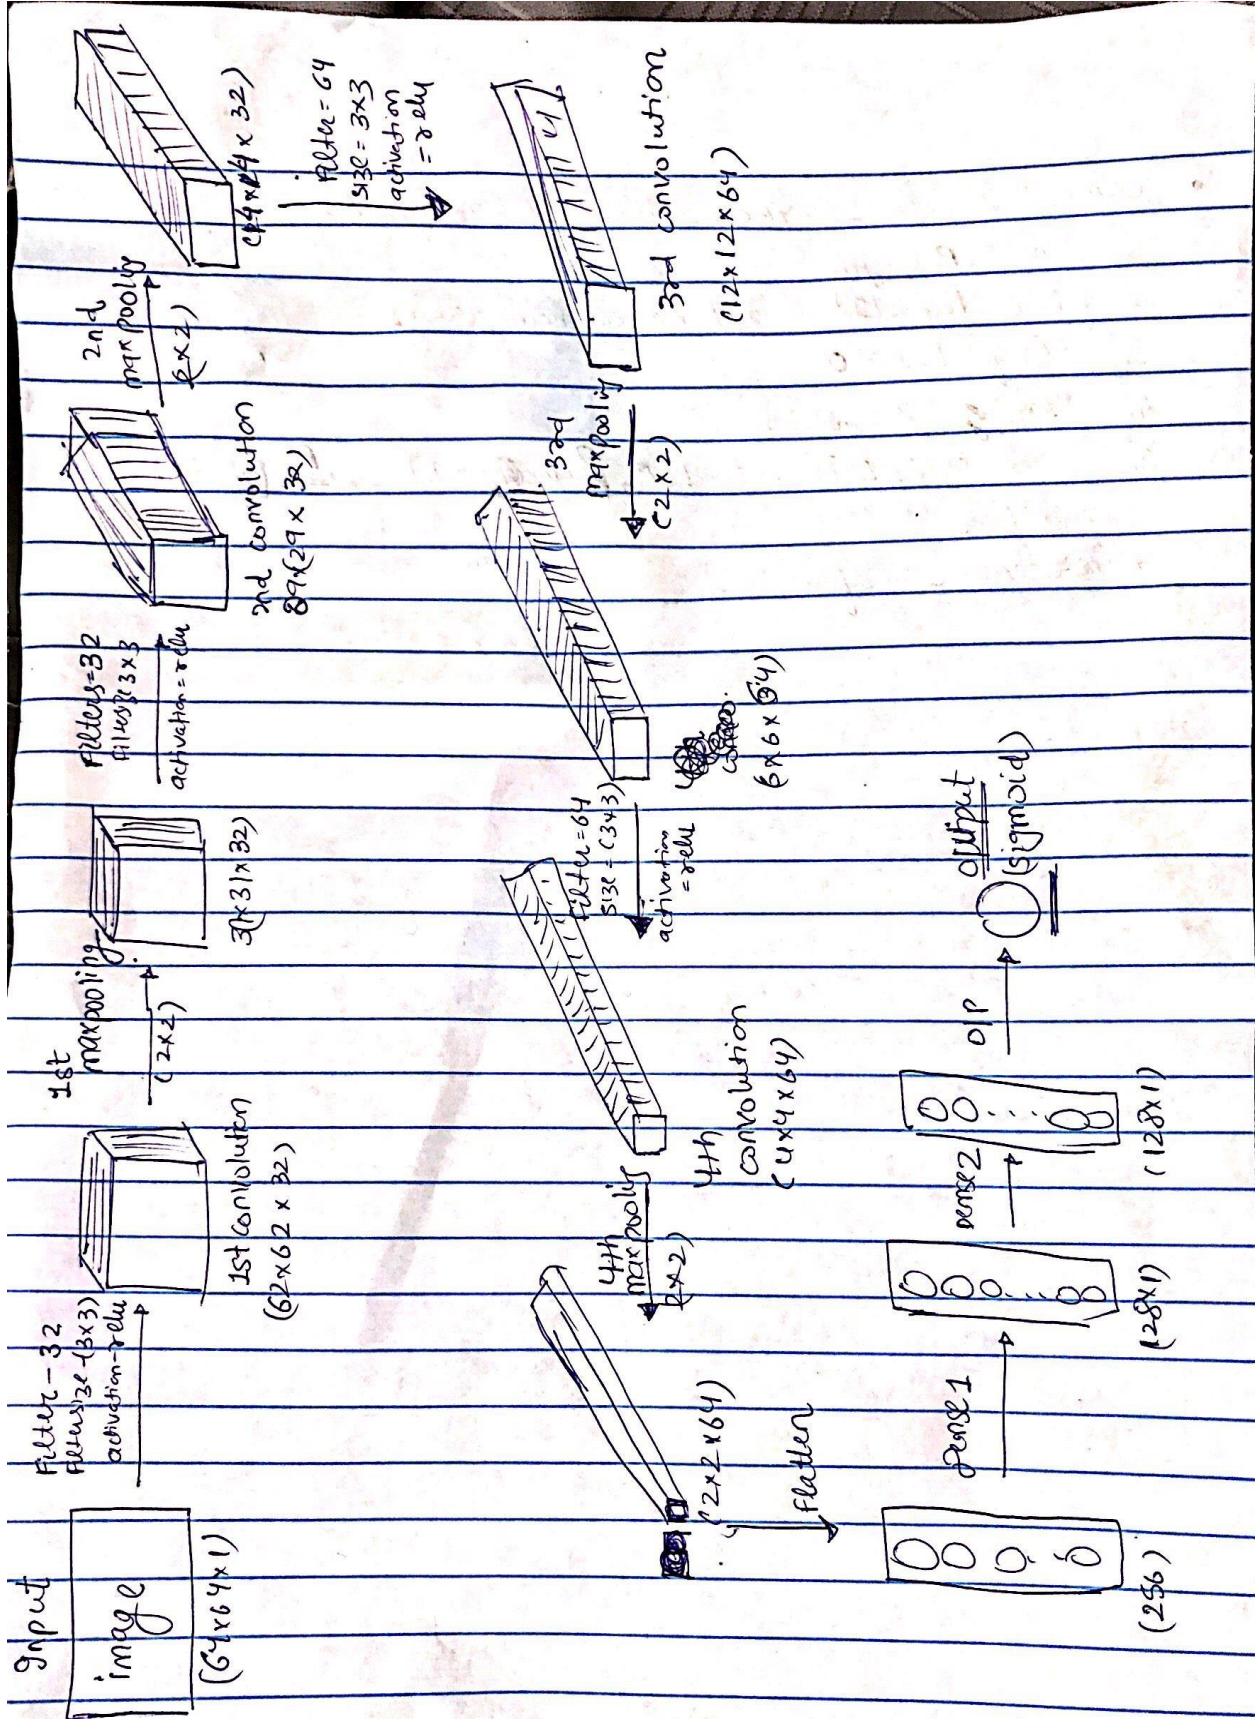 Input
image
(64x64x1)
Filter-32
Filtersize-(3x3)
activation-relu
1st convolution
(62x62x32)
1st
maxpooling
(2x2)
31x31x32)
Filters=32
Filtersize 3x3
activation=relu
2nd convolution
29x29x32)
2nd
maxpooling
(2x2)
(14x14x32)
Filter=64
size=3x3
activation
=relu
3rd convolution
(12x12x64)
3rd
maxpooling
(2x2)
6x6x64)
Filter=64
size=(3x3)
activation
=relu
4th
convolution
(4x4x64)
4th
maxpooling
(2x2)
(2x2x64)
Flatten
(256)
Dense1
(128x1)
Dense2
(128x1)
O/P
output
(sigmoid)